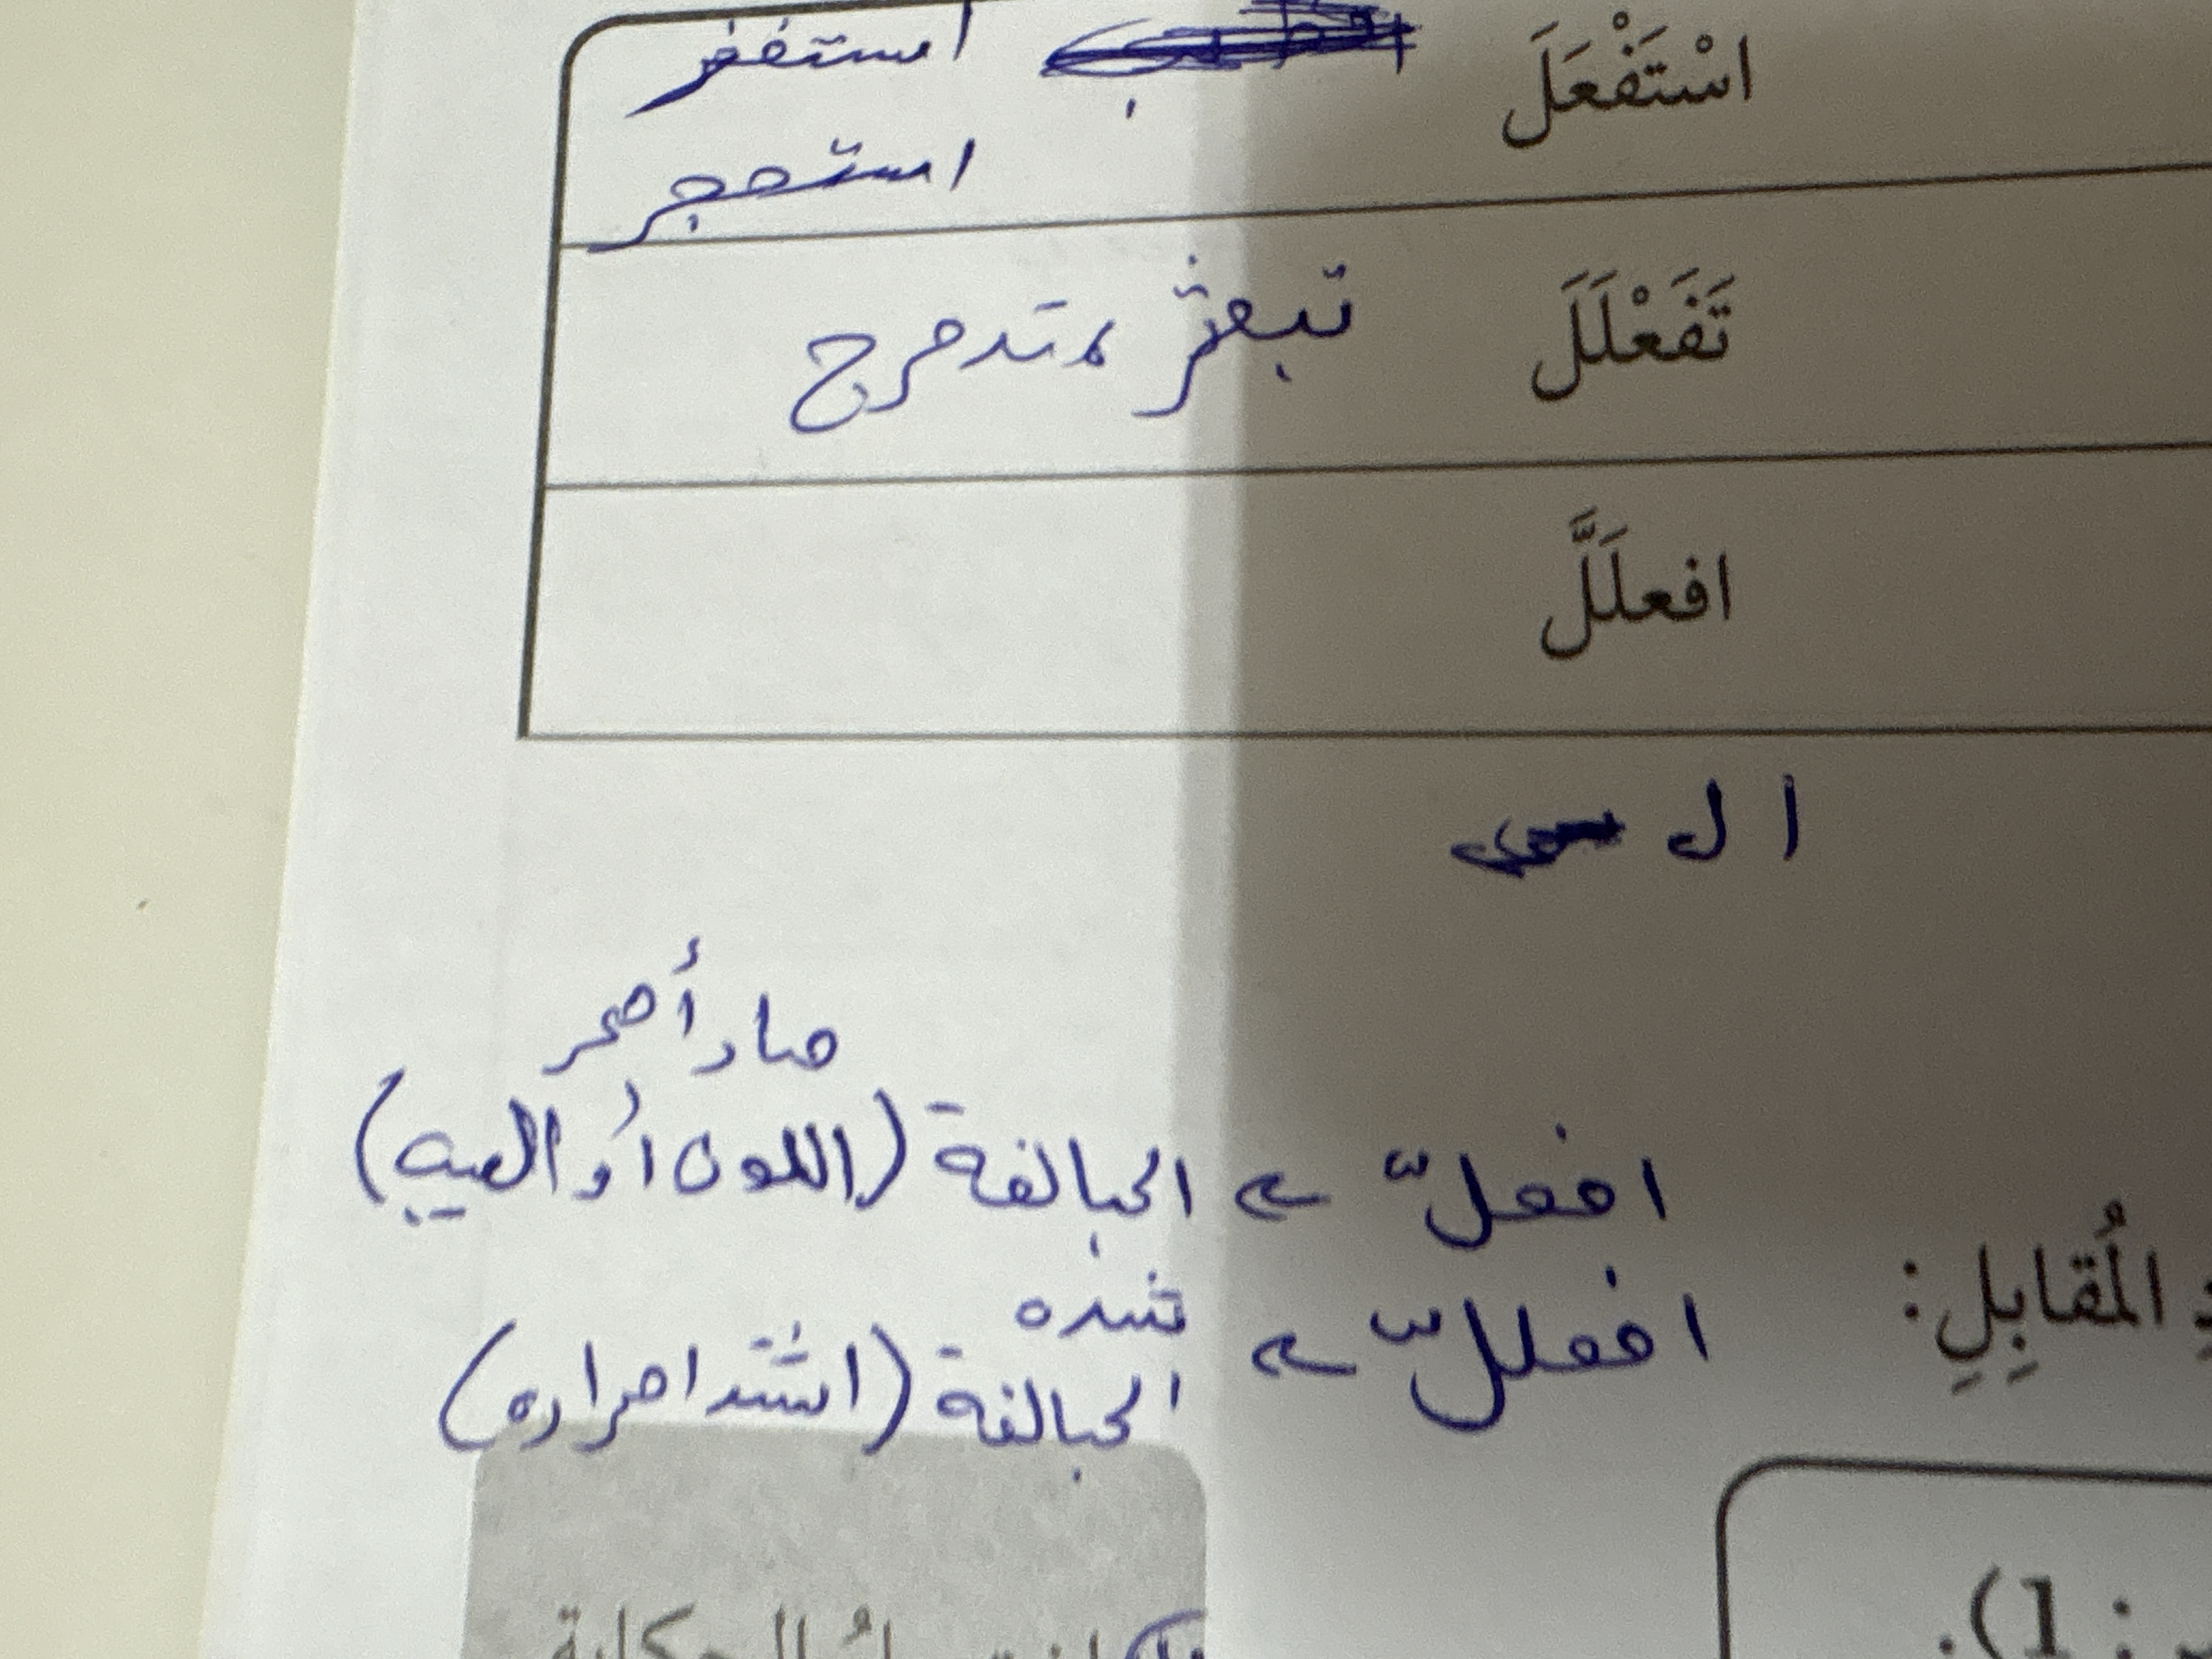 اسْتَفْعَلَ استغفر
استحجر
تَفَعْلَلَ تبعثر، تدحرج
افعلَلَّ
ا ل
صار أحمر
افعلّ ← المبالغة (اللون أو العيب)
شده
افعللّ ← المبالغة (اشتد احمراره)
المُقابِلِ:
1).